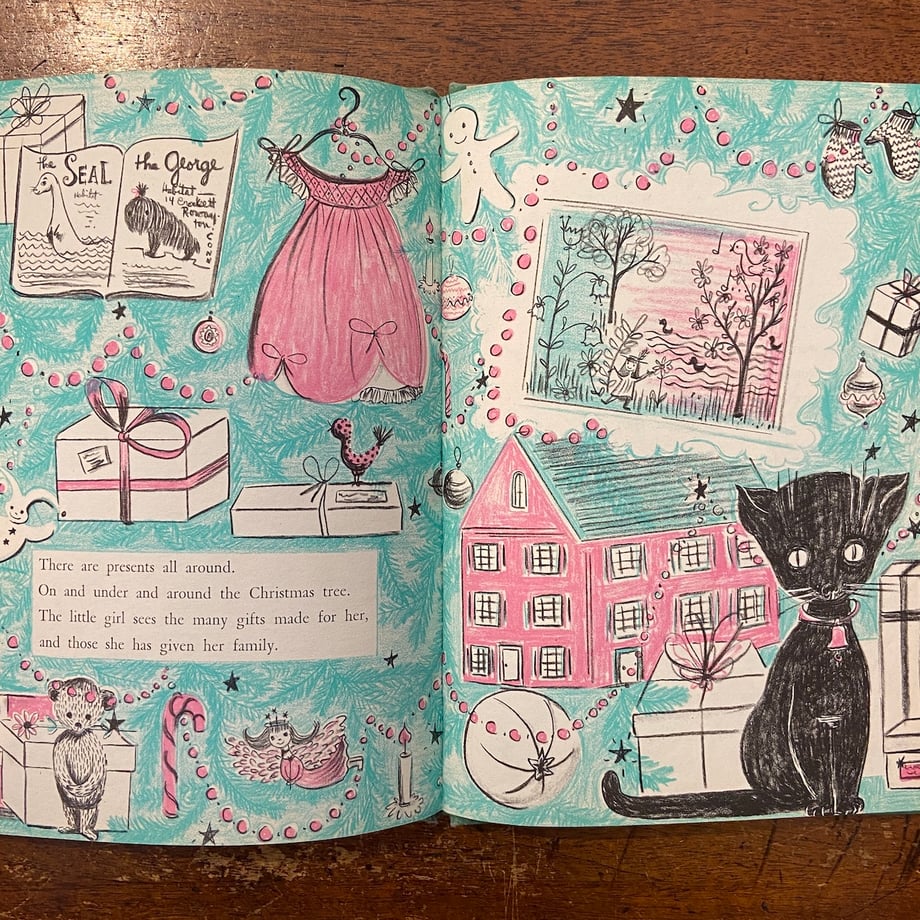 the SEAL
Habitat
the George
Habitat —
14 Crockett
Roway-
ton
CONN
There are presents all around.
On and under and around the Christmas tree.
The little girl sees the many gifts made for her,
and those she has given her family.